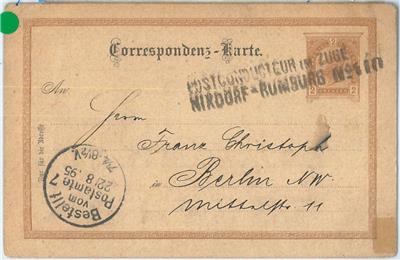 Correspondenz-Karte.
2
2 2
POSTCONDUCTEUR IM ZUGE
NIXDORF-RUMBURG No
An
Herrn
Franz Christoph
in Berlin N.W.
Mittelstr. 11
Nur für die Adresse
Bestellt
vom
Postamte 7
22/8.95
7¼-8½V.